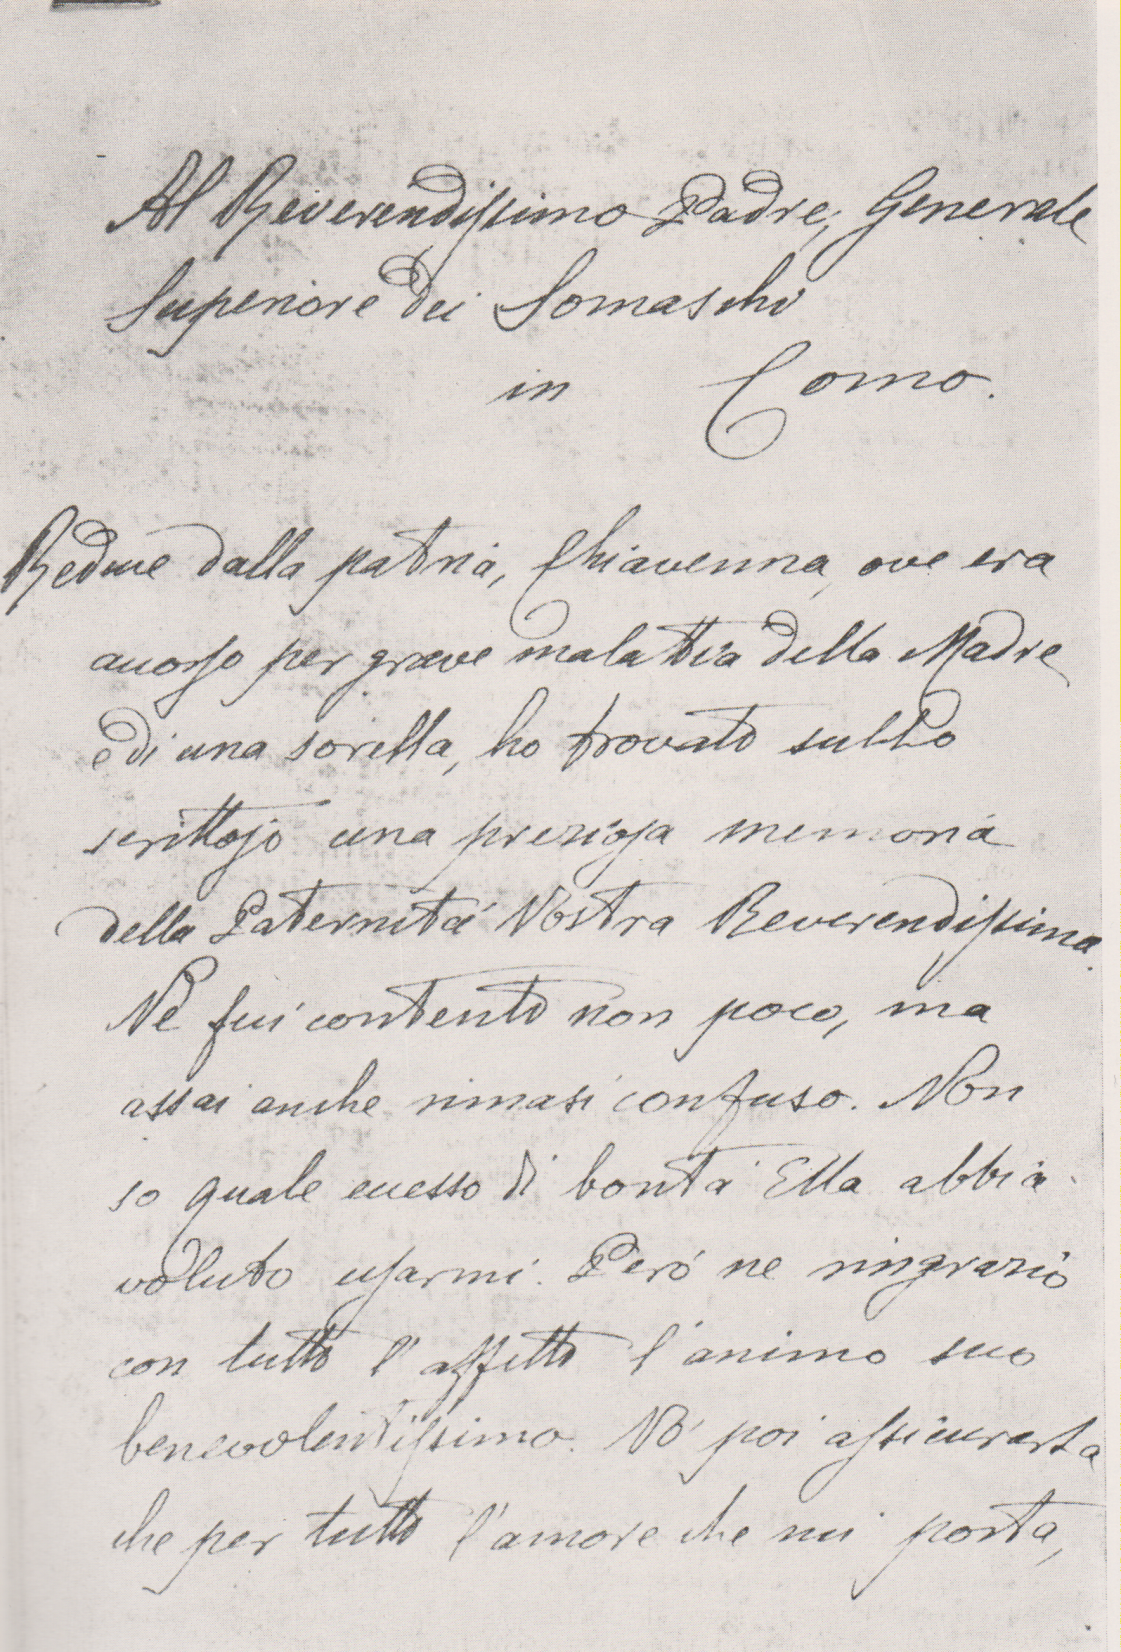 Al Reverendissimo Padre, Generale
Superiore dei Somaschi
in Como.
Reduce dalla patria, Chiavenna, ove era
accorso per grave malattia della Madre
e di una sorella, ho trovato sullo
scrittojo una preziosa memoria
della Paternità Vostra Reverendissima.
Ne fui contento non poco, ma
assai anche rimasi confuso. Non
so quale eccesso di bontà Ella abbia
voluto usarmi. Però ne ringrazio
con tutto l'affetto l'animo suo
benevolentissimo. Vò poi assicurarla
che per tutto l'amore che mi porta,